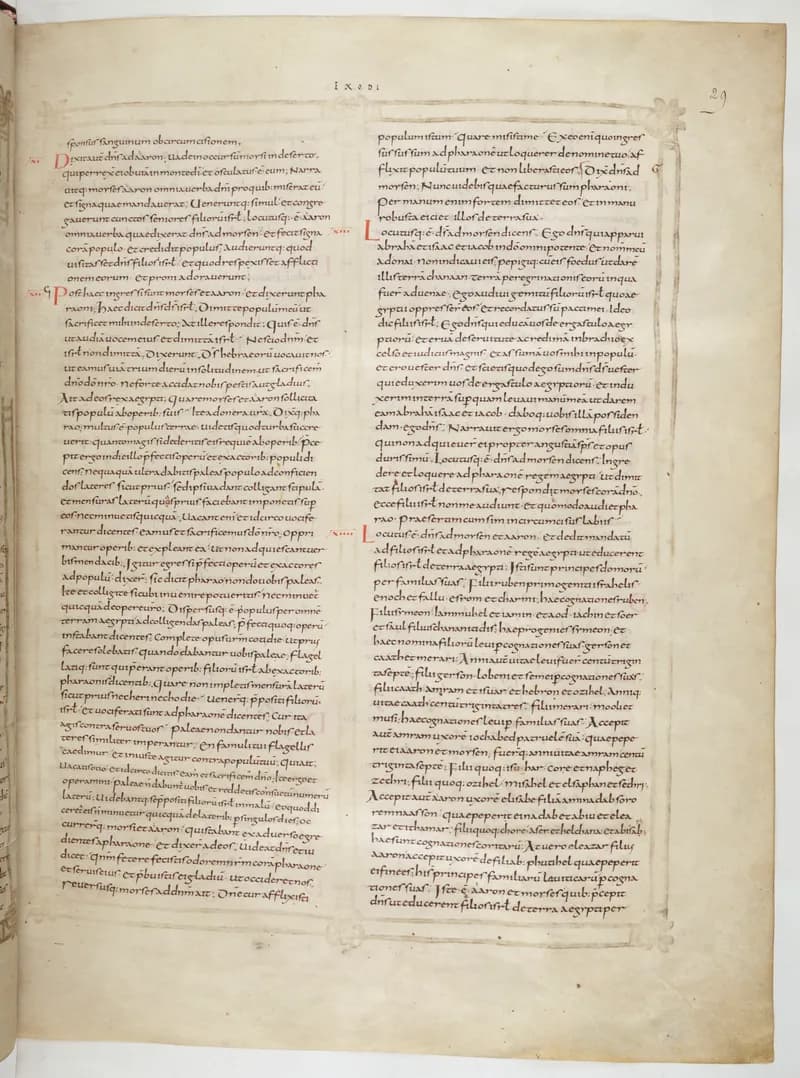 IXODI
29
sponsus sanguinum ob circumcisionem.
Dixit aut dns ad aaron; Uade in occursū morsi in deserto,
qui perrexit obuiam in monte di et osculatus ē eum; Narra
uitq; morses aaron omnia uerba dni pro quib; miserat eū
et signa quae mandauerat; Ueneruntq; simul et congre
gauerunt cunctos seniores filiorū isrl; Locutusq; ē aaron
omnia uerba quae dixerat dns ad morsen; et fecit signa
corā populo, et credidit populus; Audieruntq; quod
uisitasset dns filios isrl; et quod respexisset afflicti
onem eorum; et proni adorauerunt;
Post haec ingressi sunt morses et aaron; et dixerunt pha
raoni; Haec dicit dns ds isrl; Dimitte populū meū ut
sacrificet mihi in deserto; At ille respondit; Quis ē dns
ut audiā uocem eius et dimittā isrl; Nescio dnm, et
isrl non dimittā; Dixerunt; Ds hebraeorū uocauit nos
ut eamus uiā trium dierū in solitudinem, ut sacrificem
dno do nro; ne forte accidat nobis pestis aut gladius;
Ait ad eos rex aegypti; Quare morses et aaron sollicita
tis populū ab operib; suis; Ite ad onera ura; Dixitq; pha
rao; multus ē populus terrae; uidetis quod turba succre
uerit; quanto magis si dederitis eis requiē ab operib; Prce
pit ergo in die illo prfectis operū et exactorib; populi di
cens; nequaquā ultra dabitis paleas populo ad conficien
dos lateres sicut prius; sed ipsi uadant et colligant stipulā.
et mensurā laterū quā prius faciebant imponetis sup
eos, nec minuetis quicquā; Uacant eni et idcirco uocife
rantur dicentes, eamus et sacrificemus do nro; Oppri
mantur operib; et expleant ea, ut non adquiescant uer
bis mendacib; Igitur egressi prfecti operū et exactores
ad populū, dixer; sic dicit pharao, non do uobis paleas;
Ite et colligite sicubi inuenire potueritis, nec minuet
quicquā de opere uro; Dispersusq; ē populus per omnē
terram aegypti ad colligendas paleas; prfecti quoq; operū
instabant dicentes; Complete opus urm cotidie, ut prius
facere solebatis quando dabantur uobis paleae; Flagel
latiq; sunt qui prerant operib; filiorū isrl ab exactorib;
pharaonis dicentib; Quare non impletis mensurā laterū
sicut prius nec heri nec hodie; Uenerq; prpositi filiorū
isrl; et uociferati sunt ad pharaonē dicentes; Cur ita
agis contra seruos tuos; Paleae non dantur nobis et la
teres similiter imperantur; En famuli tui flagellis
caedimur, et iniuste agitur contra populū tuū; Qui ait;
Uacatis otio et idcirco dicitis eam et sacrificem dno; Ite ergo et
operamini; paleae n dabunt uobis et reddetis consuetū numerū
laterū; Uidebantq; se prpositi filiorū isrl in malū, eo quod di
ceret eis, n minuetur quicquā de laterib; p singulos dies; oc
currerq; morsi et aaron, qui stabant ex aduerso egre
dientes a pharaone; et dixer ad eos; Uideat dns et iu
dicet; qnm fetere fecistis odorem nrm corā pharaone
et seruis eius, et prbuistis ei gladiū, ut occideret nos;
Reuersusq; morses ad dnm ait; Dne cur afflixisti
populum istum; Quare misisti me; Ex eo eni quo ingres
sus sum ad pharaonē ut loquerer de nomine tuo, af
flixit populū tuum; et non liberasti eos; Dixit dns ad
morsen; Nunc uidebis quae facturus sum pharaoni;
Per manum enim fortem dimittet eos, et in manu
robusta eiciet illos de terra sua;
Locutusq; ē dns ad morsen dicens; Ego dns qui apparui
abrahā et isaac et iacob in do omnipotente; et nom meū
adonai, non indicaui eis; pepigiq; cū eis foedus ut darē
illis terrā chanaan, terrā peregrinationis eorū in qua
fuer aduenae; Ego audiui gemitū filiorū isrl, quo ae
gyptii oppresser eos; et recordatus sū pacti mei; Ideo
dic filiis isrl; Ego dns qui educā uos de ergastulo aegy
ptiorū; et eruā de seruitute, ac redimā in bracchio ex
celso et iudiciis magnis; et assumā uos mihi in populū
et ero uester ds; et scietis quod ego sum dns ds uester
qui eduxerim uos de ergastulo aegyptiorū; et indu
xerim in terrā sup quam leuaui manū meā ut darem
eam abrahā isaac et iacob; daboq; uobis illā possiden
dam, ego dns; Narrauit ergo morses omnia filiis isrl;
qui non adquieuer ei propter angustiā sps et opus
durissimū; Locutusq; ē dns ad morsen dicens; Ingre
dere et loquere ad pharaonē regē aegypti, ut dimit
tat filios isrl de terra sua; respondit morses corā dno;
ecce filii isrl non me audiunt, et quomodo audiet pha
rao; Praesertim cum sim incircumcisus labiis;
Locutus ē dns ad morsen et aaron, et dedit mandatū
ad filios isrl et ad pharaonē regē aegypti, ut educerent
filios isrl de terra aegypti; Isti sunt principes domorū
per familias suas; Filii ruben primogeniti israhelis
enoch et fallu, esrom et charmi; hae cognationes ruben;
Filii simeon, iammuhel et iamin, et aod, iachin et soer
et saul filius chananitidis; hae progenies simeon; et
haec nomina filiorū leui p cognationes suas; gerson et
caath et merari; Anni aut uitae leui fuer centū trigin
ta septē; filii gerson, lobeni et semei p cognationes suas;
filii caath, amram et isuar et hebron et ozihel; Anniq;
uitae caath, centū triginta tres; filii merari, mooli et
musi; hae cognationes leui p familias suas; Accepit
aut amram uxorē iochabed patruelē suā, quae pepe
rit ei aaron et morsen; fuerq; anni uitae amram centū
triginta septē; Filii quoq; isuar, core et napheg et
zechri; filii quoq; ozihel, misahel et elsaphan et sethri;
Accepit aut aaron uxorē elisabe filiā amminadab soro
rem naasson, quae peperit ei nadab et abiu et elea
zar et ithamar; filii quoq; chore, aser et helchana et abisab;
hae sunt cognationes coritarū; At uero eleazar filius
aaron accepit uxorē de filiab; phutihel, quae peperit
ei finees; hi s principes familiarū leuiticarū p cogna
tiones suas; Iste ē aaron et morses quib; prcepit
dns ut educerent filios isrl de terra aegypti per